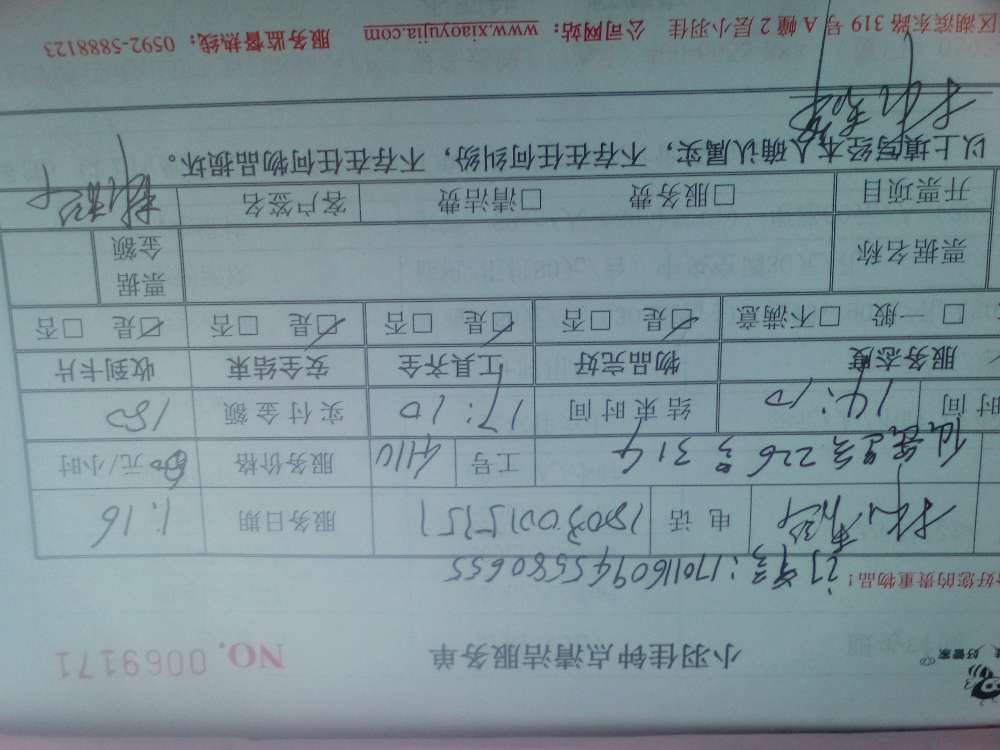 好管家 小羽佳钟点清洁服务单 NO. 0069171
好您的贵重物品!
订单号:17011609455580655
电话 18030015151 服务日期 1.16
226号314 工号 4110 服务价格 60元/小时
时间 14:10 结束时间 17:10 实付金额 180
服务态度 物品完好 工具齐全 安全结束 收到卡片
□一般 □不满意 ☑是 □否 ☑是 □否 ☑是 □否 ☑是 □否
票据名称 票据金额
开票项目 □服务费 □清洁费 客户签名
以上填写经本人确认属实,不存在任何纠纷,不存在任何物品损坏。
区湖滨东路319号A幢2层小羽佳 公司网站:www.xiaoyujia.com 服务监督热线:0592-5888123